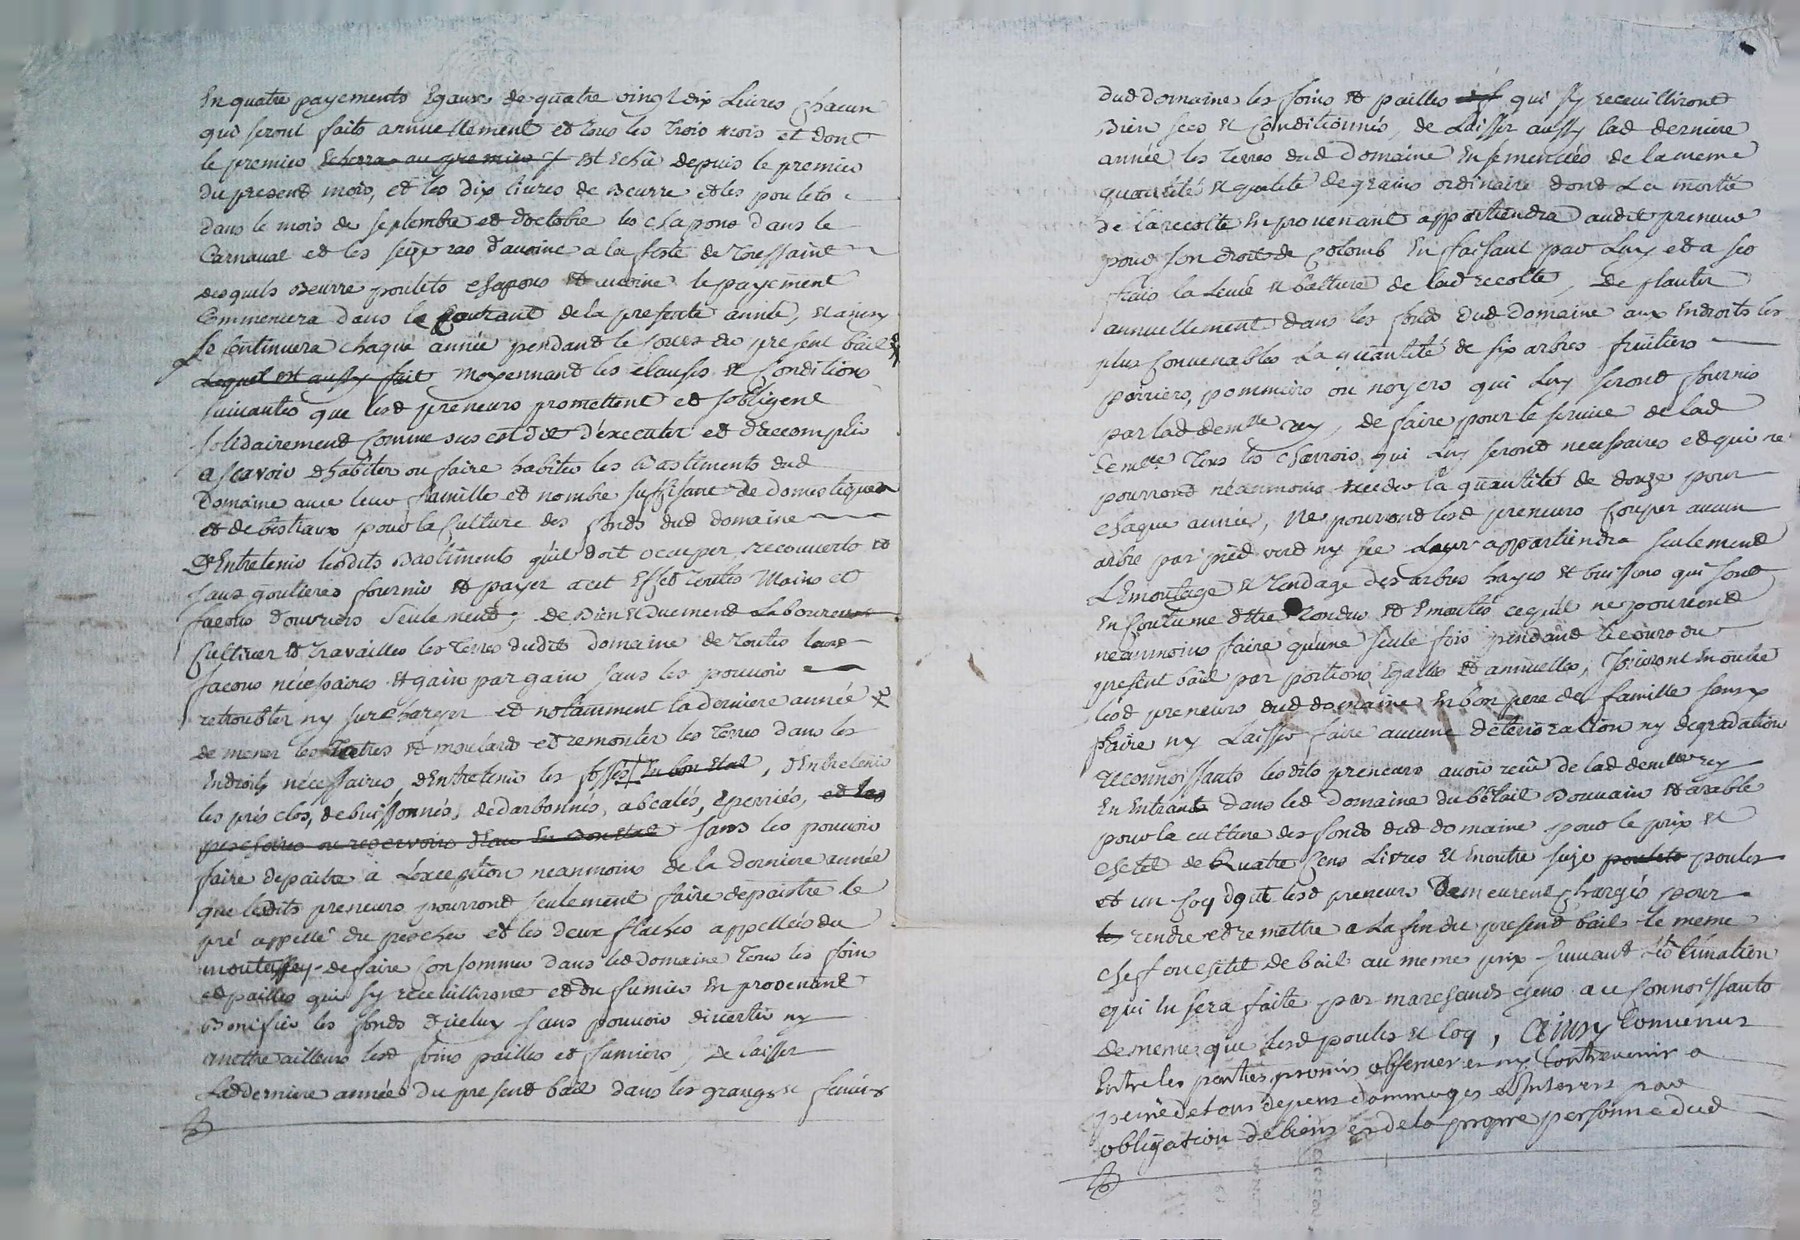 En quatre payements Egaux de quatre vingt dix Livres chacun
qui seront faits annuellement et tous les trois mois et dont
le premier echerra au premier est echû depuis le premier
du present mois, et les dix livres de Beurre et les poulets
dans le mois de septembre et d'octobre les chapons dans le
Carnaval et les seize ras d'avoine a la feste de Toussaint
desquels Beurre poulets chapons et avoine le payement
Commencera dans le Courant de la presente année, et ainsy
se Continuera chaque année pendant le cours du present bail
Lequel est aussy fait moyennant les clauses et conditions
suivantes que lesd preneurs promettent et s'obligent
solidairement comme sus est dit d'executer et d'accomplir
a scavoir d'habiter ou faire habiter les Bastiments dud
Domaine avec leur famille et nombre suffisant de domestiques
et de bestiaux pour la Culture des fonds dud domaine
D'Entretenir lesdits Bastiments qu'il doit occuper recouverts et
sans goutieres fournir et payer a cet Effet toutes Mains et
facons d'ouvriers seulement, de Bien et Duement Labourer
Cultiver et travailler les terres dudit domaine de toutes leurs
facons nécessaires et gain par gain sans les pouvoir
retroubler ny surcharger et notamment la derniere année
de mener les et moulard et remonter les terres dans les
Endroits nécessaires, d'Entretenir les fosses En bon Etat, d'Entretenir
les prés clos, debuissonnés, dedarbonnés, abealés, éperriés, et les
peschoires ou reservoirs d'eau En Bon Etat sans les pouvoir
faire depaitre a L'exception neanmoins de la derniere année
que lesdits preneurs pourront seulement faire depaistre le
pré appellé du pescher et les deux flaches appellées du
de faire consommer dans led domaine tous les foins
et pailles qui s'y receuilliront et du fumier En provenant
Bonifier les fonds d'iceluy sans pouvoir divertir ny
mettre ailleurs lesd foins pailles et fumiers, de laisser
Lad derniere année du present bail dans les granges et feniers
dud domaine les foins et pailles qui s'y receuilliront
Bien secs et Conditionnés, de Laisser aussy lad derniere
année les terres dud Domaine Ensemencées de la meme
quantité et qualité de grains ordinaire dont La moitié
de la recolte En provenant appartiendra audit preneur
pour son droit de Colomb En faisant par Luy et a ses
frais la Levée et batture de lad recolte, De planter
annuellement dans les fonds dud domaine aux Endroits les
plus convenables La quantité de six arbres fruitiers
poiriers, pommiers ou noyers qui Luy seront fournis
par lad demlle rey, de faire pour le service de lad
demlle tous les charrois qui Luy seront necessaires et qui ne
pourront néanmoins exceder la quantité de douze pour
chaque année, Ne pourront lesd preneurs couper aucun
arbre par pied verd ny sec Leur appartiendra seulement
L'Emontage et tondage des arbres hayes et buissons qui sont
En Coutume d'etre tondu et Emontés ce qu'il ne pourront
neanmoins faire qu'une seule fois pendant le cours du
present bail par portions Egalles et annuelles, Jouiront En outre
lesd preneurs dud domaine En bon pere de famille sans y
faire ny Laisser faire aucune déterioration ny degradation
reconnoissants lesdits preneurs avoir reçu de lad demlle rey
En Entrant dans led Domaine du bétail Bouvain et arable
pour la culture des fonds dud domaine pour le prix et
cheté de Quatre Cens Livres et En outre seize poulets poules
et un coq dont lesd preneurs Demeurent chargés pour
les rendre et remettre a La fin du present bail le meme
chef ou de bail au meme prix suivant l'Estimation
qui En sera faite par marchands gens a ce Connoissants
de meme que lesd poules et coq, Ainsy Convenus
Entre les parties promis observer et ny Contrevenir a
peine de tous depens dommages et Interets par
obligation de biens et de la propre personne dud